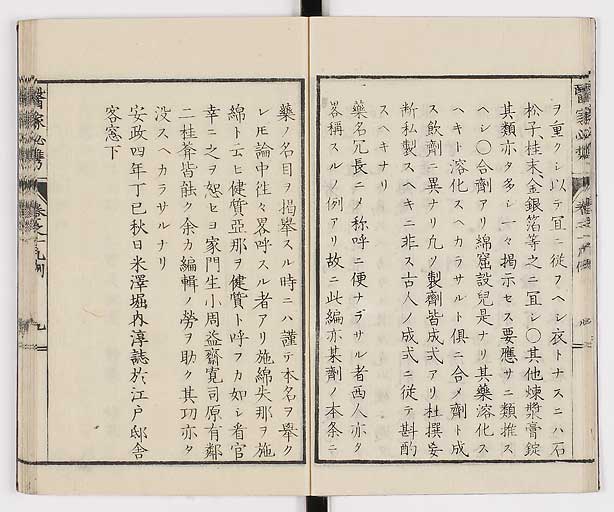 ヲ重クシ以テ冝ニ從フヘシ衣トナスニハ石
松子桂末金銀箔等之ニ冝シ〇其他煉漿膏錠
其類亦タ多シ一々揭示セス要應サニ類推ス
ヘシ〇合劑アリ綿窟設兒是ナリ其藥溶化ス
ヘキト溶化スヘカラサルト俱ニ合メ劑ト成
ス飲劑ニ異ナリ凢ソ製劑皆成式アリ杜撰妄
断私製スヘキニ非ス古人ノ成式ニ從テ斟酌
スヘキナリ
藥名冗長ニメ称呼ニ便ナラサル者西人亦タ
畧稱スルノ例アリ故ニ此編亦某劑ノ本条ニ
藥ノ名目ヲ揭擧スル時ニハ謹テ本名ヲ擧ク
レ𪜈論中徃々畧呼スル者アリ施綿失那ヲ施
綿ト云ヒ健質亞那ヲ健質ト呼フカ如シ看官
幸ニ之ヲ恕セヨ家門生小周益齋寛司原有鄰
二桂葊皆能ク余カ編輯ノ勞ヲ助ク其功亦タ
没スヘカラサルナリ
安政四年丁巳秋日米澤堀内淳誌於江戸邸舎
客窓下
醫家必携
卷之一
九